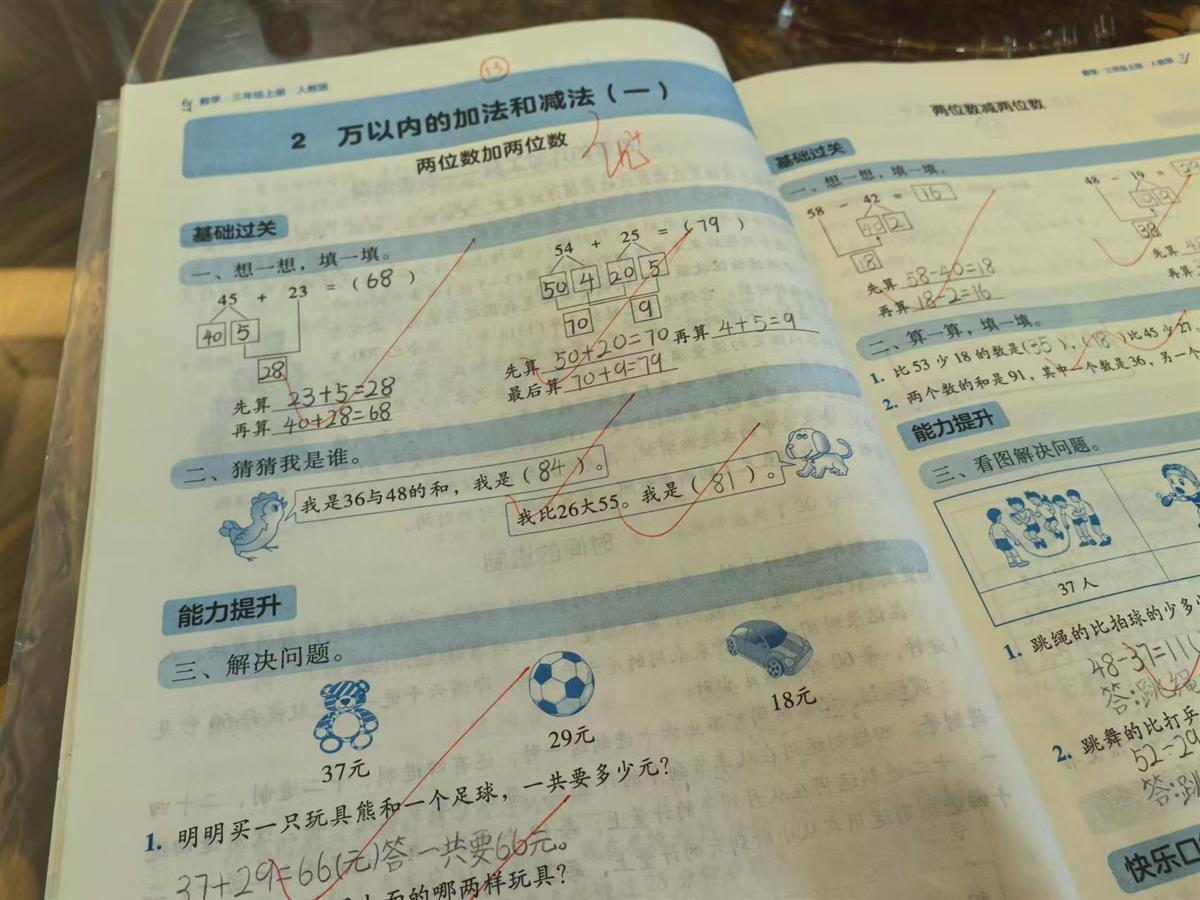 13
数学·三年级上册 人教版
2 万以内的加法和减法(一)
两位数加两位数
基础过关
一、想一想,填一填。
45 + 23 = (68)
40 5
28
先算 23+5=28
再算 40+28=68
54 + 25 = (79)
50 4 20 5
70 9
先算 50+20=70 再算 4+5=9
最后算 70+9=79
二、猜猜我是谁。
我是36与48的和,我是(84)。
我比26大55。我是(81)。
能力提升
三、解决问题。
37元
29元
18元
1. 明明买一只玩具熊和一个足球,一共要多少元?
37+29=66(元)答:一共要66元。
面的哪两样玩具?
数学·三年级上册 人教版
两位数减两位数
基础过关
一、想一想,填一填。
58 - 42 = 16
40 2
18
先算 58-40=18
再算 18-2=16
48 - 19 =
10 9
38
先算
再算
二、算一算,填一填。
1. 比53少18的数是(35),(18)比45少27。
2. 两个数的和是91,其中一个数是36,另一个
能力提升
三、看图解决问题。
37人
1. 跳绳的比拍球的少多少
48-37=11(
答:跳绳
2. 跳舞的比打乒
52-29
答:跳
快乐口